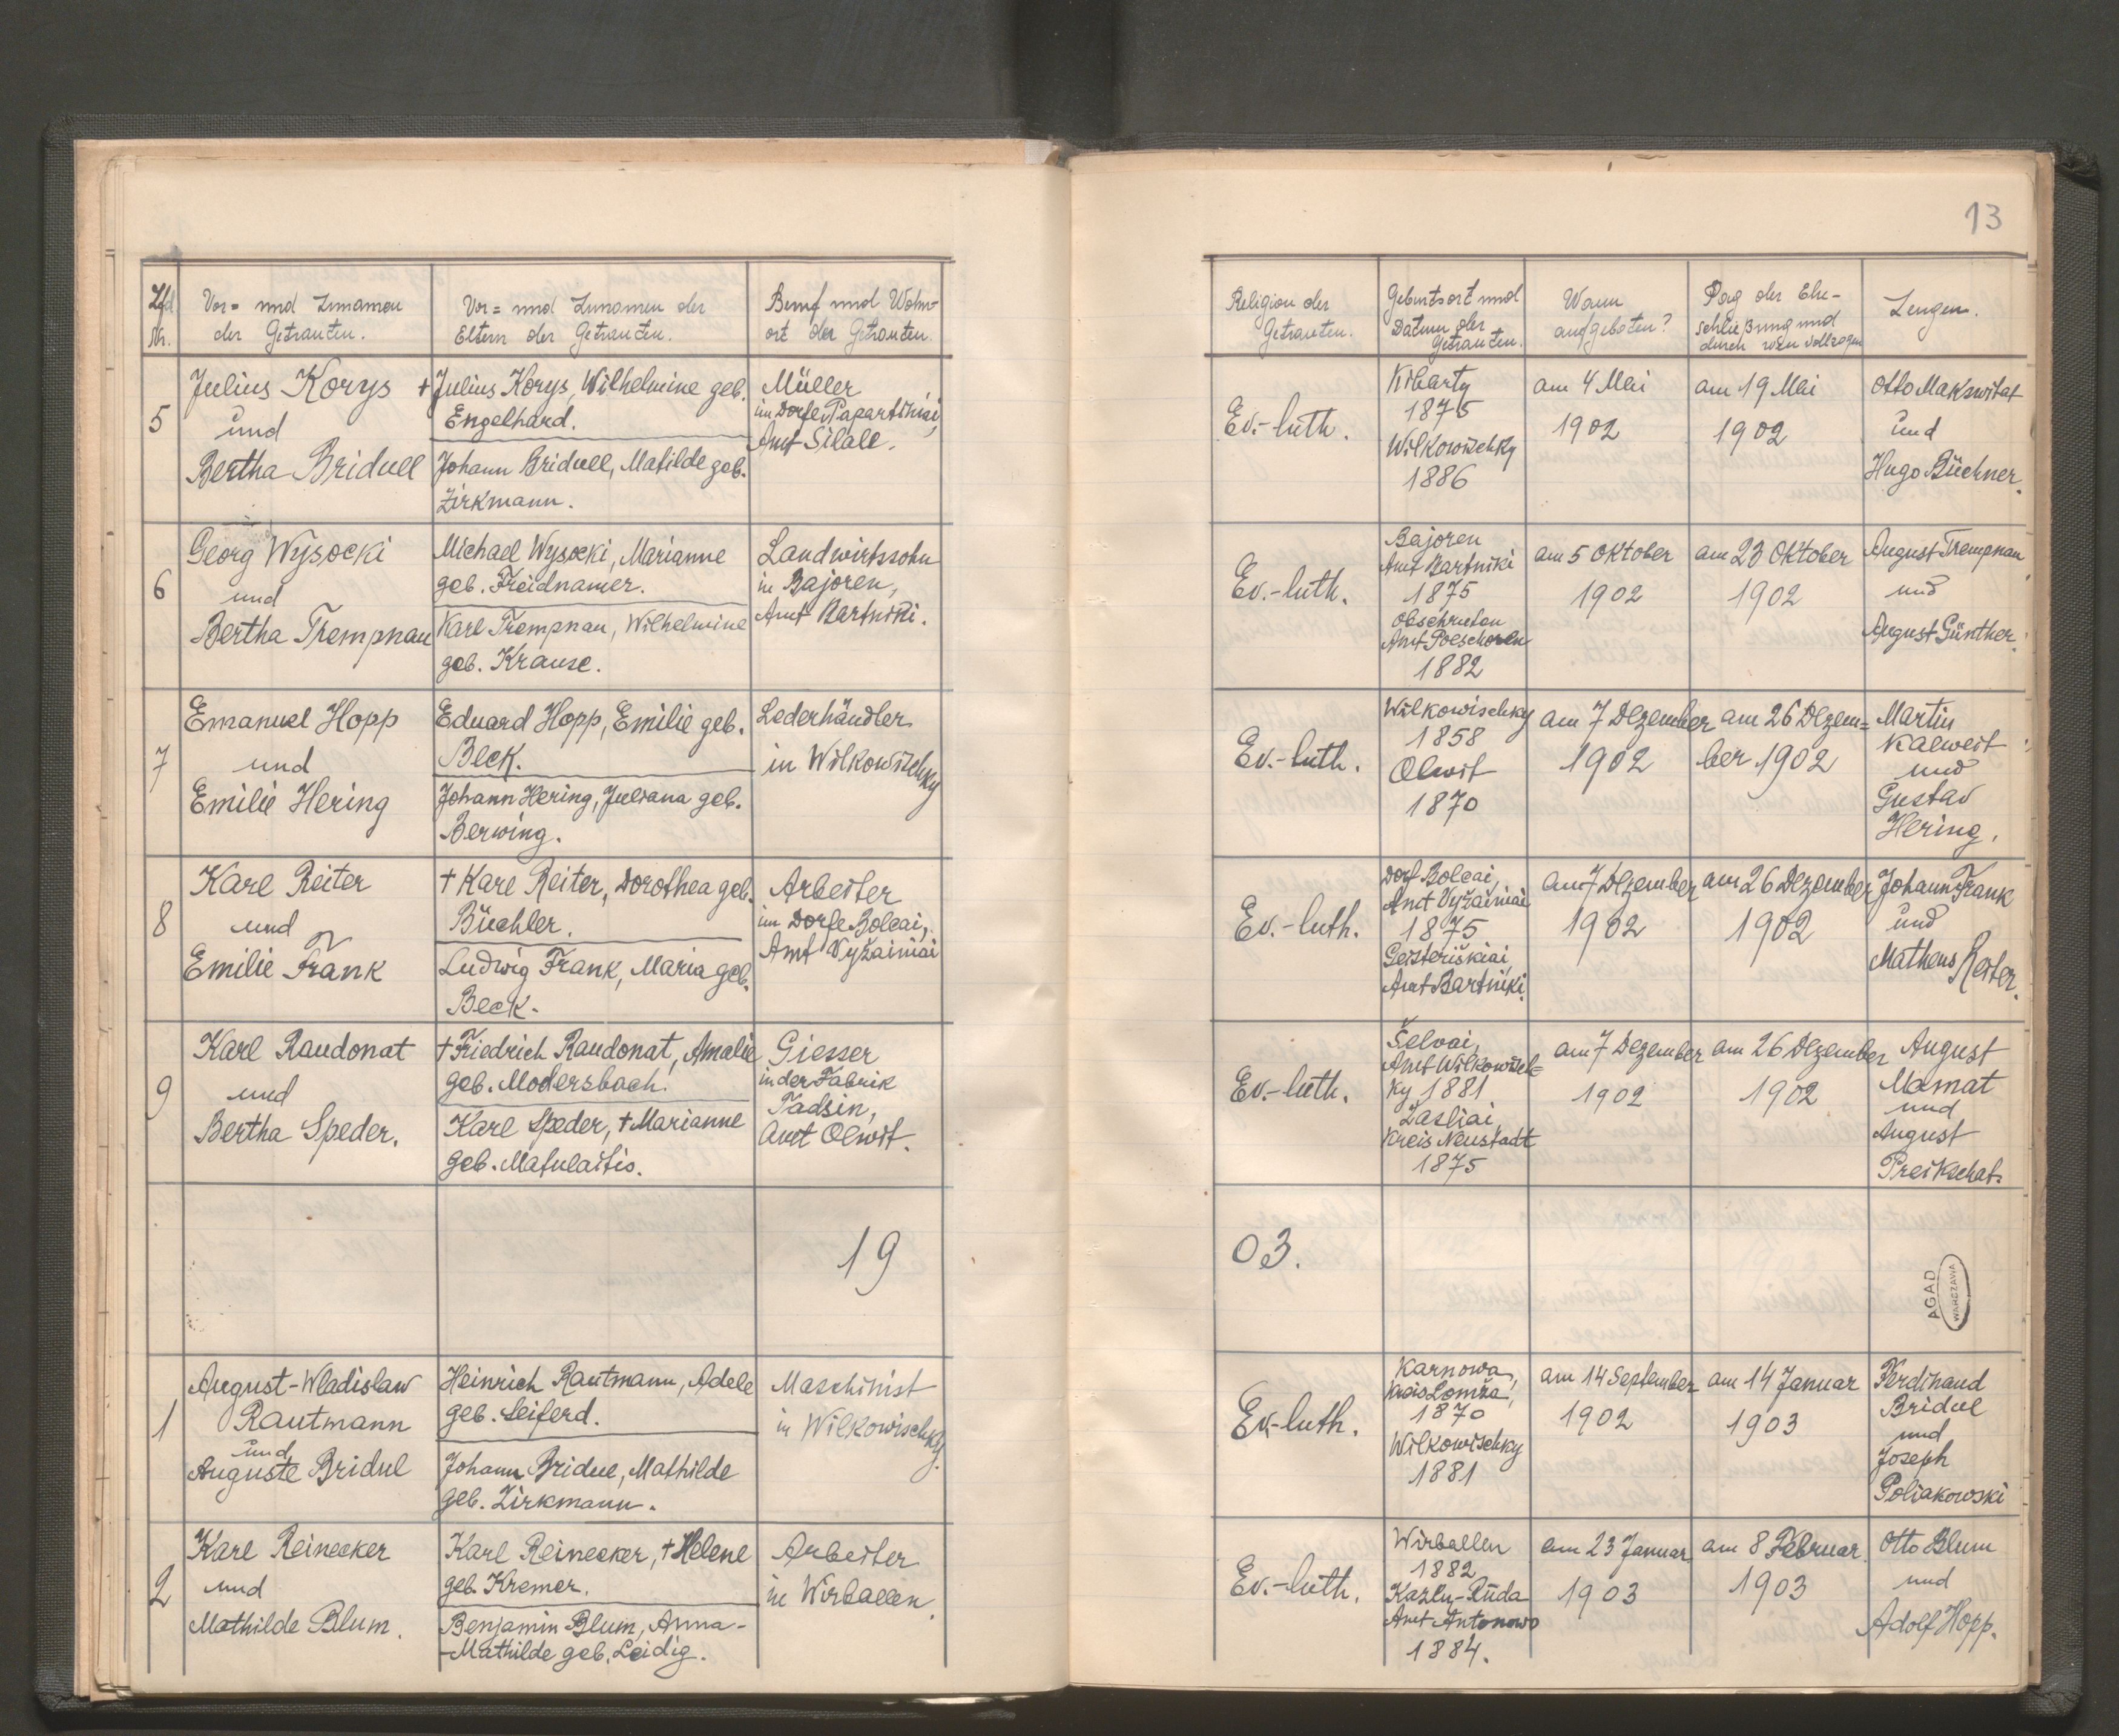 13
Lfd Nr.
Vor= und Zunamen
der Getrauten.
Vor= und Zunamen der
Eltern der Getrauten.
Beruf und Wohn-
ort der Getrauten.
Religion der
Getrauten.
Geburtsort und
Datum der
Getrauten.
Wann
aufgeboten?
Tag der Ehe-
schließung und
durch wen vollzogen
Zeugen.
5
Julius Korys
und
Bertha Bridull
+ Julius Korys, Wilhelmine geb.
Engelhard.
Johann Bridull, Matilde geb.
Zirkmann.
Müller
im Dorfe Papartiniai,
Amt Silale.
Ev.-luth.
Kibarty
1875
Wilkowischky
1886
am 4 Mai
1902
am 19 Mai
1902
Otto Makswitat
und
Hugo Büchner.
6
Georg Wysocki
und
Bertha Trempnau
Michael Wysocki, Marianne
geb. Freidnamer.
Karl Trempnau, Wilhelmine
geb. Krause.
Landwirtssohn
in Bajoren,
Amt Bartniki.
Ev.-luth.
Bajoren
Amt Bartniki
1875
Obschruten
Amt
1882
am 5 Oktober
1902
am 23 Oktober
1902
August Trempnau
und
August Günther.
7
Emanuel Hopp
und
Emilie Hering
Eduard Hopp, Emilie geb.
Beck.
Johann Hering, Juliana geb.
Berwing.
Lederhändler
in Wilkowischky
Ev.-luth.
Wilkowischky
1858
Olwit
1870
am 7 Dezember
1902
am 26 Dezem=
ber 1902
Martin
Kalweit
und
Gustav
Hering.
8
Karl Reiter
und
Emilie Frank
+ Karl Reiter, Dorothea geb.
Büchler.
Ludwig Frank, Maria geb.
Beck.
Arbeiter
im Dorfe Bolcai,
Amt Vyžainiai
Ev.-luth.
Dorf Bolcai,
Amt Vyžainiai
1875
Geisteriškiai,
Amt Bartniki.
am 7 Dezember
1902
am 26 Dezember
1902
Johann Frank
und
Matheus Reiter.
9
Karl Raudonat
und
Bertha Speder.
+ Friedrich Raudonat, Amalie
geb. Modersbach.
Karl Speder, + Marianne
geb. Matulaitis.
Giesser
in der Fabrik
Tadsin,
Amt Olwit.
Ev.-luth.
Šelvai,
Amt Wilkowisch=
ky 1881
Žasliai
Kreis Neustadt
1875
am 7 Dezember
1902
am 26 Dezember
1902
August
Mamat
und
August
Preikschat.
19
03.
AGAD
WARSZAWA
1
August-Wladislaw
Rautmann
und
Auguste Bridul
Heinrich Rautmann, Adele
geb. Seiferd.
Johann Bridul, Mathilde
geb. Zirkmann.
Maschinist
in Wilkowischky.
Ev.-luth.
Karnowa,
Kreis Lomža,
1870
Wilkowischky
1881
am 14 September
1902
am 14 Januar
1903
Ferdinand
Bridul
und
Joseph
Poliakowski
2
Karl Reinecker
und
Mathilde Blum.
Karl Reinecker, + Helene
geb. Kremer.
Benjamin Blum, Anna-
-Mathilde geb. Leidig.
Arbeiter
in Wirballen.
Ev.-luth.
Wirballen
1882
Kazlu-Rūda
Amt Antonowo
1884.
am 23 Januar
1903
am 8 Februar
1903
Otto Blum
und
Adolf Hopp.